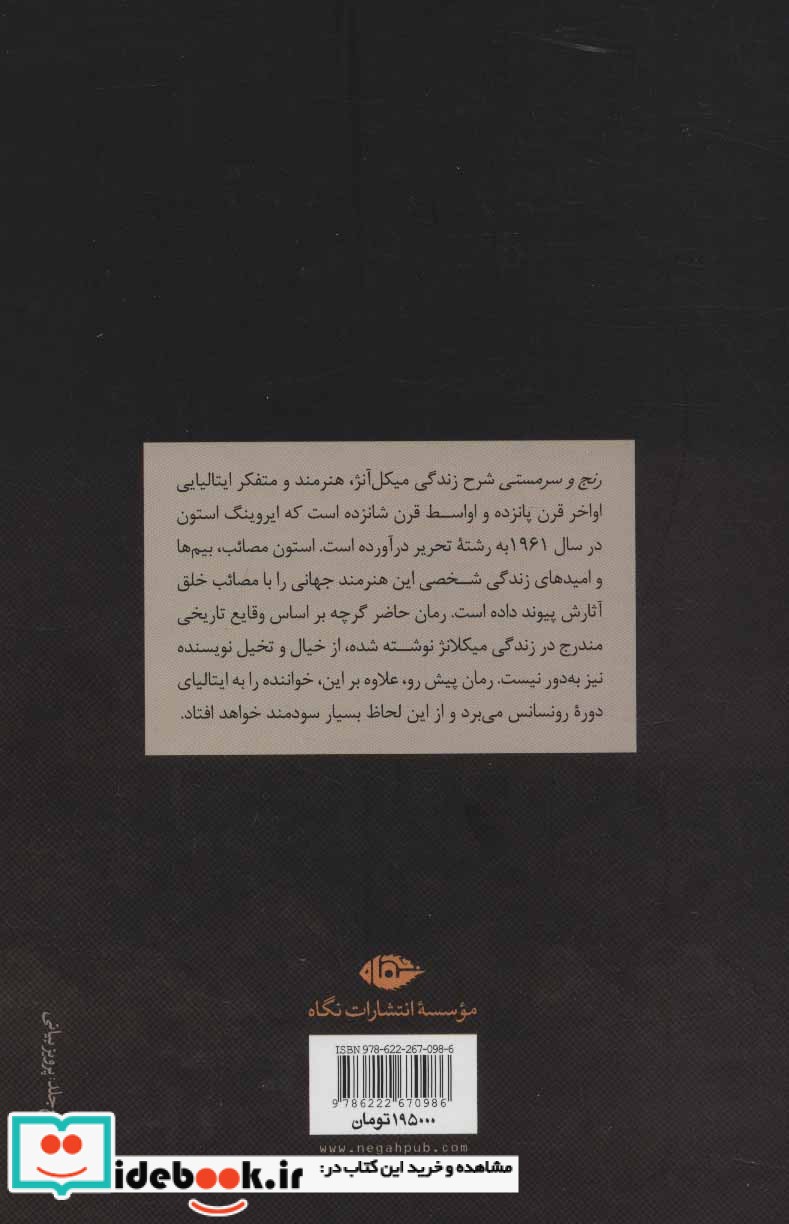 رنج و سرمستی شرح زندگی میکل‌آنژ، هنرمند و متفکر ایتالیایی
اواخر قرن پانزده و اواسط قرن شانزده است که ایروینگ استون
در سال ۱۹۶۱ به رشتهٔ تحریر درآورده است. استون مصائب، بیم‌ها
و امیدهای زندگی شخصی این هنرمند جهانی را با مصائب خلق
آثارش پیوند داده است. رمان حاضر گرچه بر اساس وقایع تاریخی
مندرج در زندگی میکلانژ نوشته شده، از خیال و تخیل نویسنده
نیز به‌دور نیست. رمان پیش رو، علاوه بر این، خواننده را به ایتالیای
دورهٔ رونسانس می‌برد و از این لحاظ بسیار سودمند خواهد افتاد.
مؤسسهٔ انتشارات نگاه
ISBN 978-622-267-098-6
9 786222 670986
۱۹۵۰۰۰ تومان
www.negahpub.com
جلد: پرویز بیانی
مشاهده و خرید این کتاب در:
idebook.ir